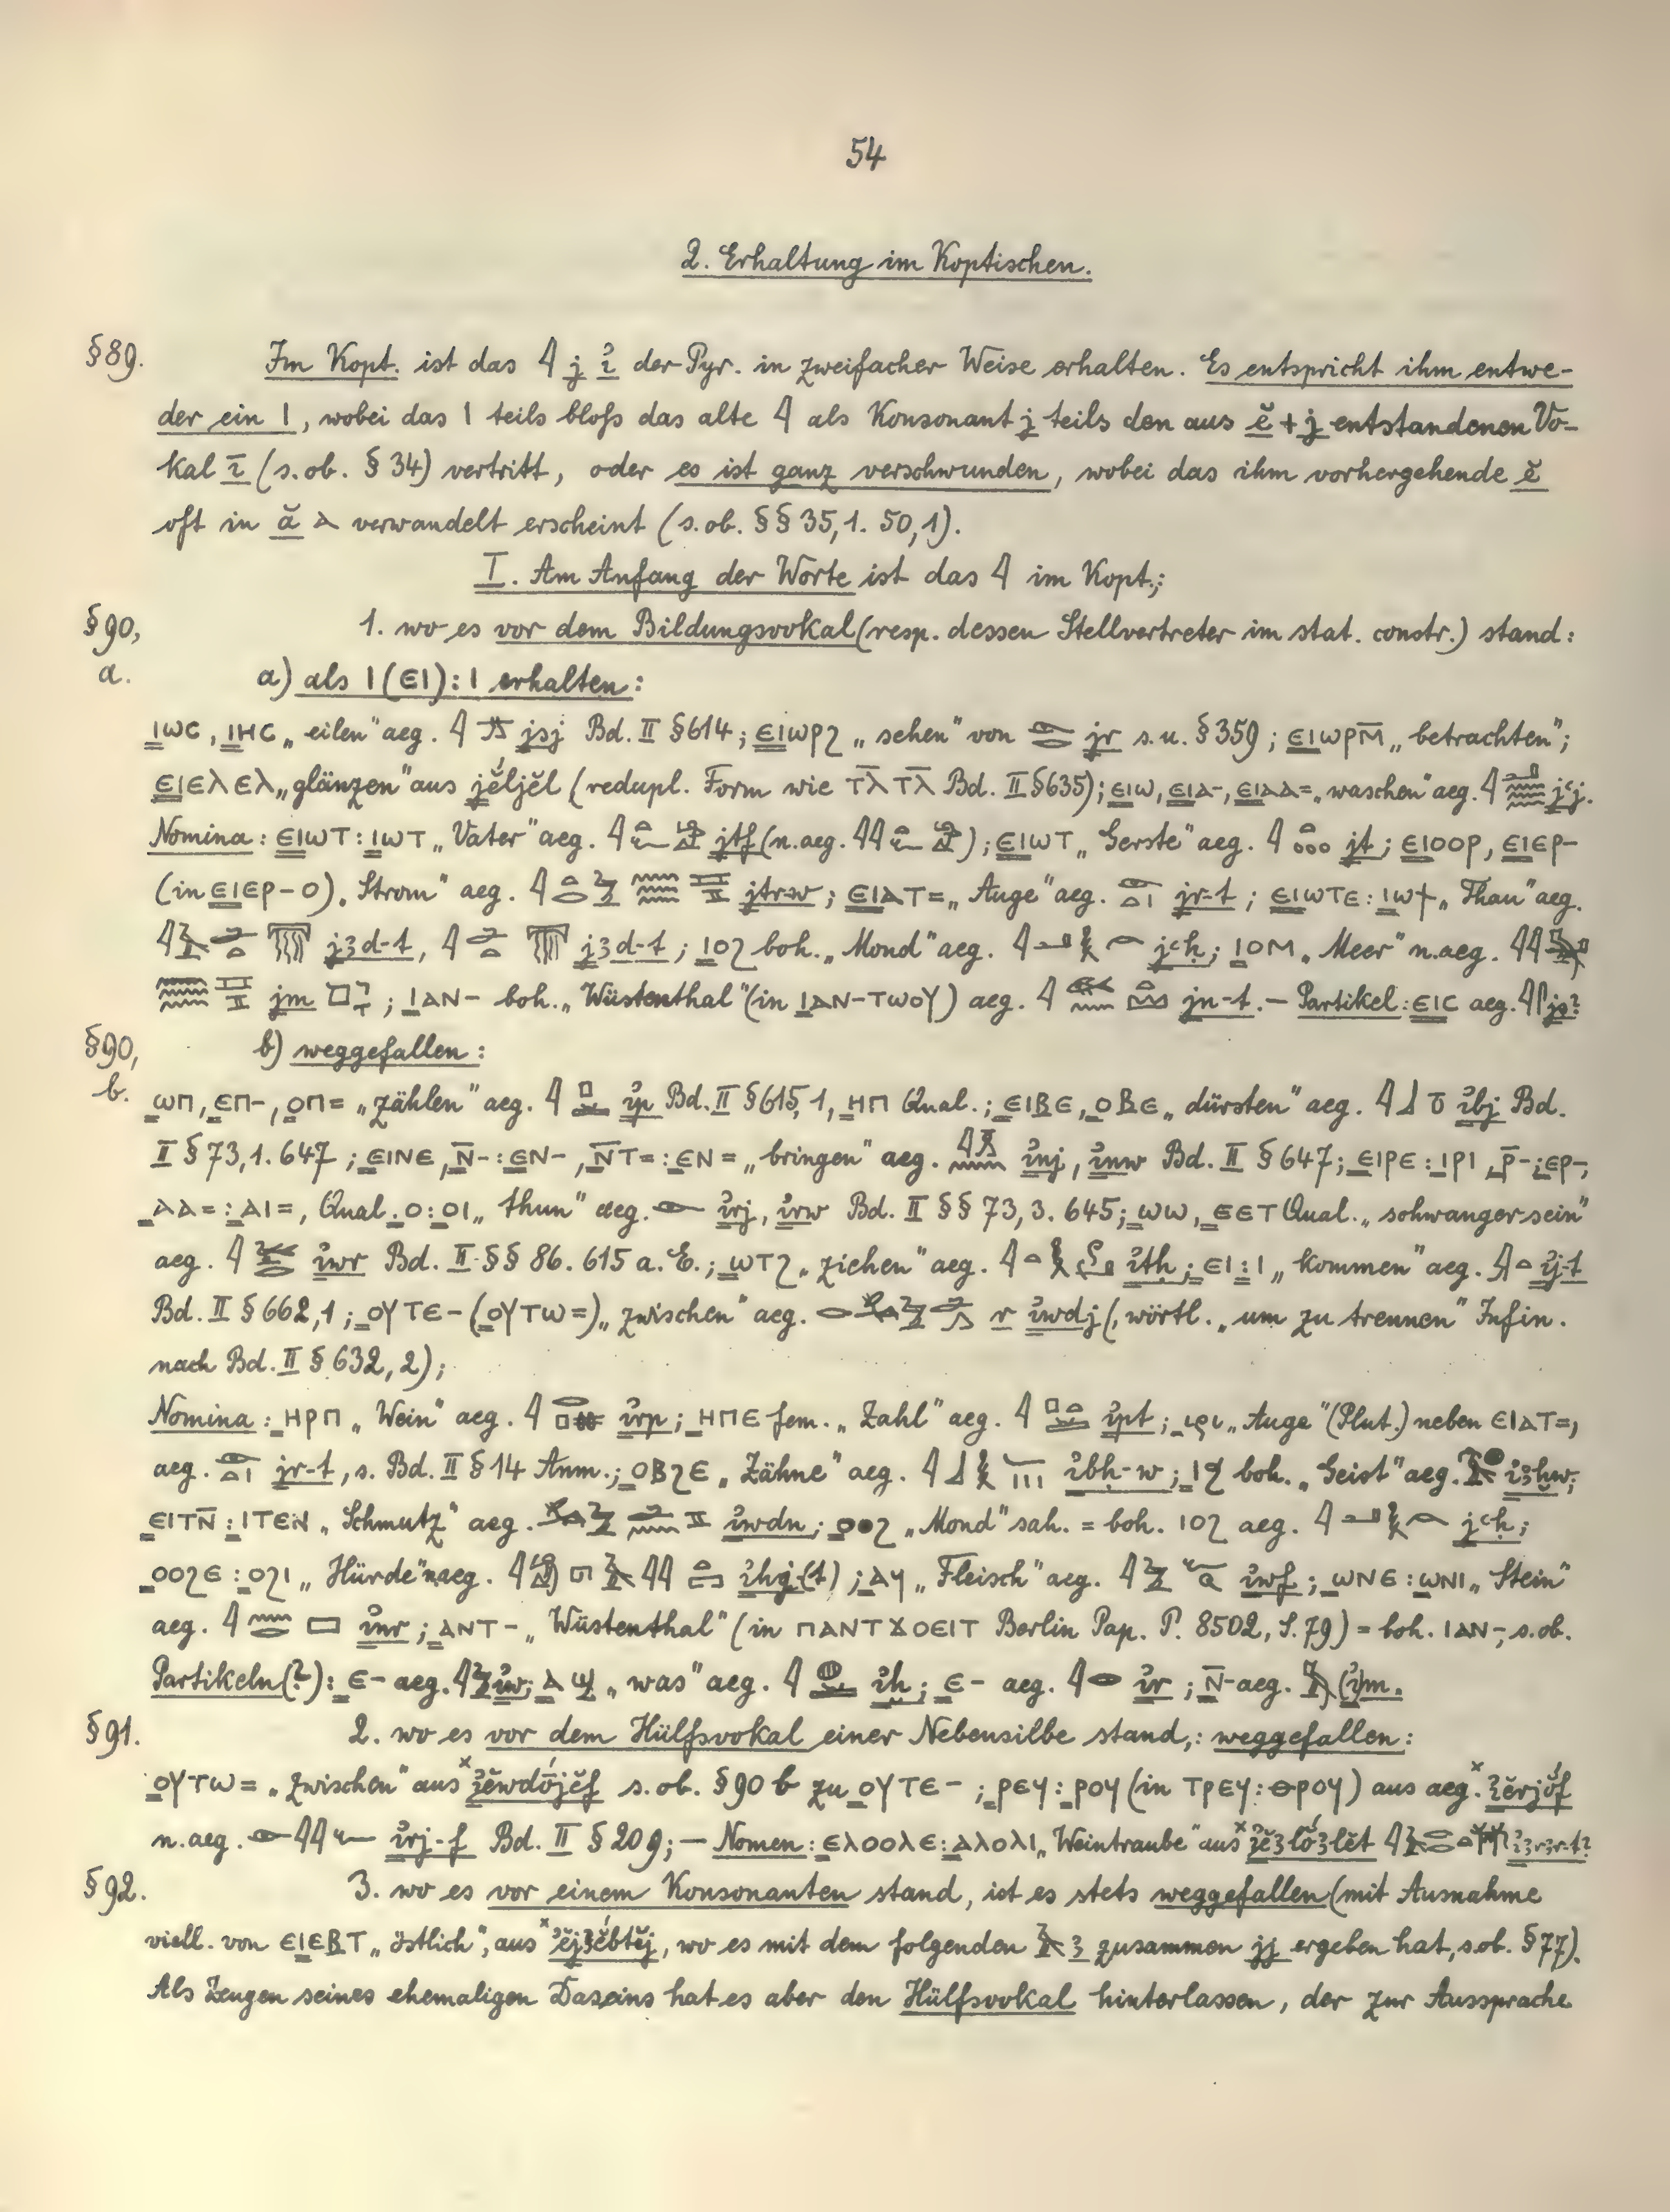 54
2. Erhaltung im Koptischen.
§89. Im Kopt. ist das 𓇋 j ỉ der Pyr. in zweifacher Weise erhalten. Es entspricht ihm entwe-
der ein ⲓ, wobei das ⲓ teils bloss das alte 𓇋 als Konsonant j teils den aus ĕ + j entstandenen Vo-
kal ī (s. ob. § 34) vertritt, oder es ist ganz verschwunden, wobei das ihm vorhergehende ĕ
oft in ă ⲁ verwandelt erscheint (s. ob. §§ 35,1. 50,1).
I. Am Anfang der Worte ist das 𓇋 im Kopt.;
§90, 1. wo es vor dem Bildungsvokal (resp. dessen Stellvertreter im stat. constr.) stand:
a. a) als ⲓ (ⲉⲓ) : ⲓ erhalten:
ⲓⲱⲥ, ⲓⲏⲥ „eilen" aeg. jsj Bd. II §614; ⲉⲓⲱⲣϩ „sehen" von jr s. u. §359; ⲉⲓⲱⲣⲙ̅ „betrachten";
ⲉⲓⲉⲗⲉⲗ „glänzen" aus jĕ́ljĕl (redupl. Form wie ⲧⲗ̅ⲧⲗ̅ Bd. II §635); ⲉⲓⲱ, ⲉⲓⲁ-, ⲉⲓⲁⲁ= „waschen" aeg. 𓇋 jꜥj.
Nomina: ⲉⲓⲱⲧ : ⲓⲱⲧ „Vater" aeg. jtf (n.aeg.); ⲉⲓⲱⲧ „Gerste" aeg. jt; ⲉⲓⲟⲟⲣ, ⲉⲓⲉⲣ-
(in ⲉⲓⲉⲣ-ⲟ) „Strom" aeg. jtrw; ⲉⲓⲁⲧ= „Auge" aeg. jr-t; ⲉⲓⲱⲧⲉ : ⲓⲱϯ „Thau" aeg.
jꜣd-t, jꜣd-t; ⲓⲟϩ boh. „Mond" aeg. jꜥḥ; ⲓⲟⲙ „Meer" n.aeg.
jm; ⲓⲁⲛ- boh. „Wüstenthal" (in ⲓⲁⲛ-ⲧⲱⲟⲩ) aeg. jn-t. – Partikel: ⲉⲓⲥ aeg. js?
§90, b) weggefallen:
b. ⲱⲡ, ⲉⲡ-, ⲟⲡ= „zählen" aeg. ỉp Bd. II §615,1, ⲏⲡ Qual.; ⲉⲓⲃⲉ, ⲟⲃⲉ „dürsten" aeg. ỉbj Bd.
II § 73,1. 647; ⲉⲓⲛⲉ, ⲛ̅- : ⲉⲛ-, ⲛ̅ⲧ= : ⲉⲛ= „bringen" aeg. ỉnj, ỉnw Bd. II § 647; ⲉⲓⲣⲉ : ⲓⲣⲓ, ⲣ̅- : ⲉⲣ-,
ⲁⲁ= : ⲁⲓ=, Qual. ⲟ : ⲟⲓ „thun" aeg. ỉrj, ỉrw Bd. II §§ 73,3. 645; ⲱⲱ, ⲉⲉⲧ Qual. „schwanger sein"
aeg. ỉwr Bd. II §§ 86. 615 a. E.; ⲱⲧϩ „ziehen" aeg. ỉtḥ; ⲉⲓ : ⲓ „kommen" aeg. ỉj-t
Bd. II § 662,1; ⲟⲩⲧⲉ- (ⲟⲩⲧⲱ=) „zwischen" aeg. r ỉwdj (, wörtl. „um zu trennen" Infin.
nach Bd. II § 632,2);
Nomina: ⲏⲣⲡ „Wein" aeg. ỉrp; ⲏⲡⲉ fem. „Zahl" aeg. ỉpt; ιρι „Auge" (Plut.) neben ⲉⲓⲁⲧ=,
aeg. jr-t, s. Bd. II § 14 Anm.; ⲟⲃϩⲉ „Zähne" aeg. ỉbḥ-w; ⲓϧ boh. „Geist" aeg. ỉꜣḫw;
ⲉⲓⲧⲛ̅ : ⲓⲧⲉⲛ „Schmutz" aeg. ỉwdn; ⲟⲟϩ „Mond" sah. = boh. ⲓⲟϩ aeg. jꜥḥ;
ⲟⲟϩⲉ : ⲟϩⲓ „Hürde" n.aeg. ỉhj(t); ⲁϥ „Fleisch" aeg. ỉwf; ⲱⲛⲉ : ⲱⲛⲓ „Stein"
aeg. ỉnr; ⲁⲛⲧ- „Wüstenthal" (in ⲡⲁⲛⲧϫⲟⲉⲓⲧ Berlin Pap. P. 8502, S. 79) = boh. ⲓⲁⲛ-, s. ob.
Partikeln(?): ⲉ- aeg. ỉw; ⲁϣ „was" aeg. ỉḫ; ⲉ- aeg. ỉr; ⲛ̅- aeg. (ỉ)m.
§91. 2. wo es vor dem Hülfsvokal einer Nebensilbe stand,: weggefallen:
ⲟⲩⲧⲱ= „zwischen" aus s. ob. §90 b zu ⲟⲩⲧⲉ-; ⲣⲉϥ : ⲣⲟϥ (in ⲧⲣⲉϥ : ⲑⲣⲟϥ) aus aeg.
n.aeg. ỉrj-f Bd. II § 209; – Nomen: ⲉⲗⲟⲟⲗⲉ : ⲁⲗⲟⲗⲓ „Weintraube" aus
§92. 3. wo es vor einem Konsonanten stand, ist es stets weggefallen (mit Ausnahme
viell. von ⲉⲓⲉⲃⲧ „östlich", aus wo es mit dem folgenden 𓄿 ꜣ zusammen jj ergeben hat, s. ob. §77).
Als Zeugen seines ehemaligen Daseins hat es aber den Hülfsvokal hinterlassen, der zur Aussprache